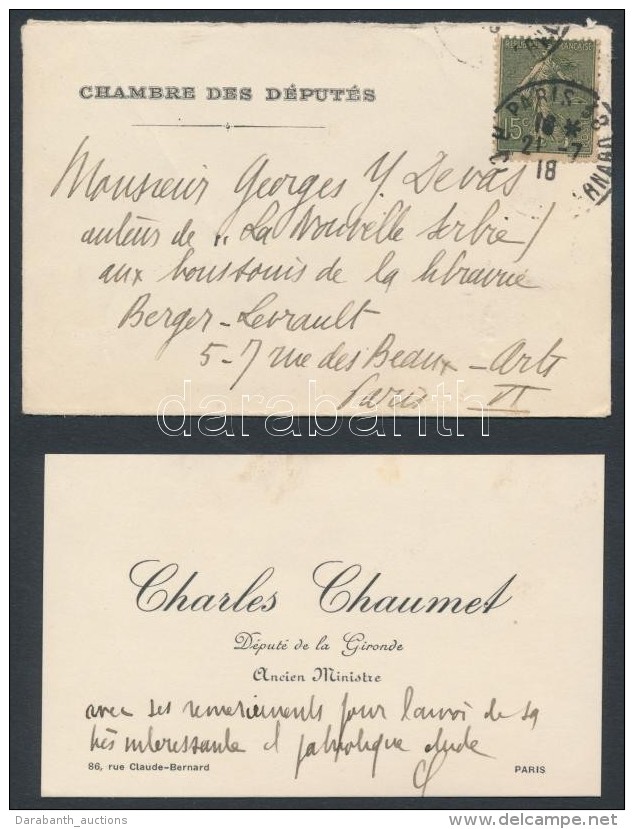 CHAMBRE DES DÉPUTÉS
REPUBLIQUE FRANÇAISE
15c
PARIS
18 *
21 -7
18
Monsieur Georges Y. Devas
auteur de „La Nouvelle Serbie"
aux bons soins de la librairie
Berger-Levrault
5-7 rue des Beaux-Arts
Paris VI
darabanth
Charles Chaumet
Député de la Gironde
Ancien Ministre
avec ses remerciements pour l'envoi de sa
très intéressante et patriotique étude
86, rue Claude-Bernard
PARIS
Darabanth_auctions
www.delcampe.net